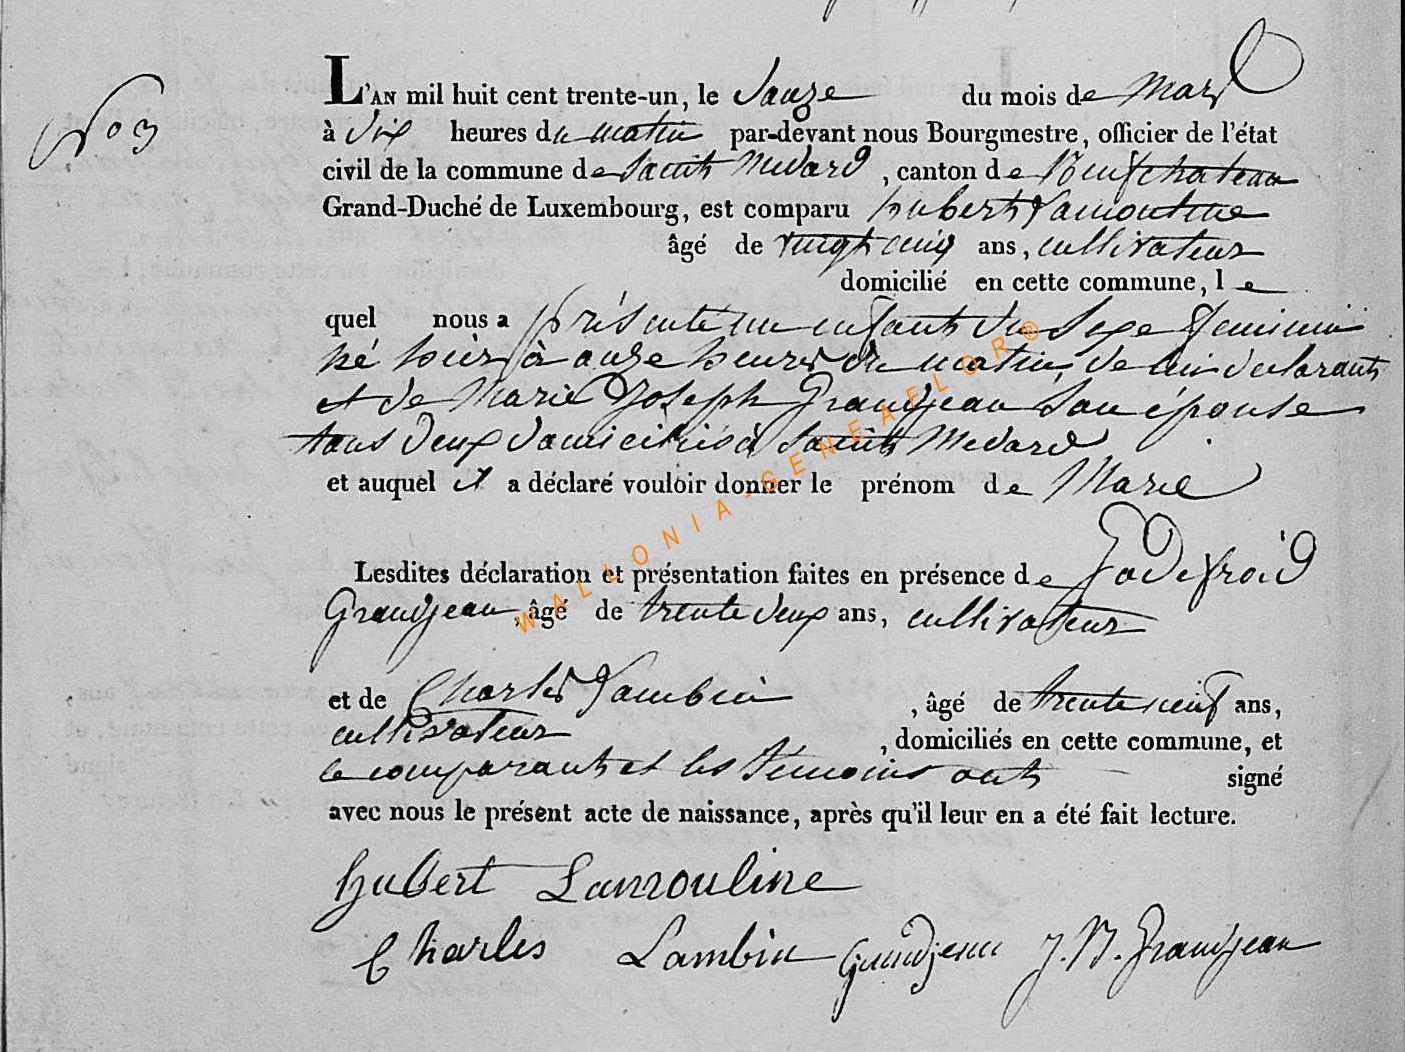 N° 3
L'AN mil huit cent trente-un, le douze du mois de Mars
à dix heures du matin par-devant nous Bourgmestre, officier de l'état
civil de la commune de Saint Medard, canton de Neufchateau
Grand-Duché de Luxembourg, est comparu hubert Lamouline
âgé de vingt cinq ans, cultivateur
domicilié en cette commune, le
quel nous a présenté un enfant du Sexe feminin
né hier à onze heures du matin, de lui declarant
et de Marie Joseph Grandjean Son épouse
tous deux domiciliés à Saint Medard
et auquel il a déclaré vouloir donner le prénom de Marie
Lesdites déclaration et présentation faites en présence de Godefroid
Grandjean, âgé de trente deux ans, cultivateur
et de Charles Lambin, âgé de trente neuf ans,
cultivateur, domiciliés en cette commune, et
le comparant et les témoins ont signé
avec nous le présent acte de naissance, après qu'il leur en a été fait lecture.
hubert Lamouline
Charles Lambin Grandjean J. N. Grandjean
WALLONIA-GENEAELOR®